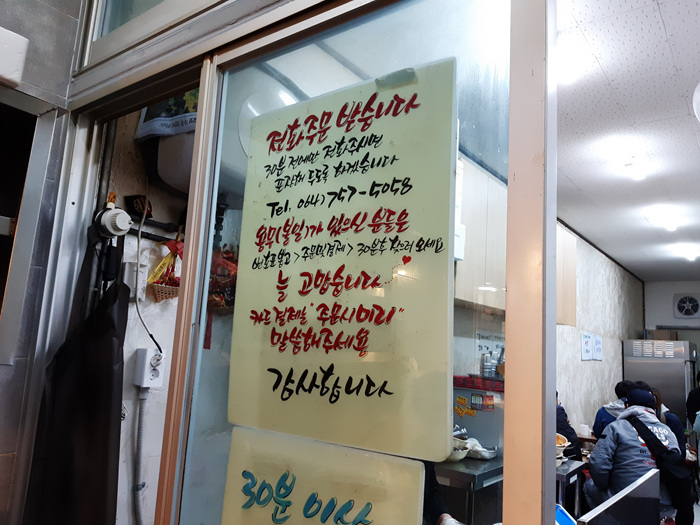 전화주문 받습니다
30분 전에만 전화주시면
포장해 두도록 하겠습니다
Tel. 064) 757-5058
용무(볼일)가 있으신 분들은
번호표뽑고 > 주문및결제 > 30분후 찾으러 오세요
늘 고맙습니다...
카드결제는 "주문시 미리"
말씀해주세요
감사합니다
30분 이상